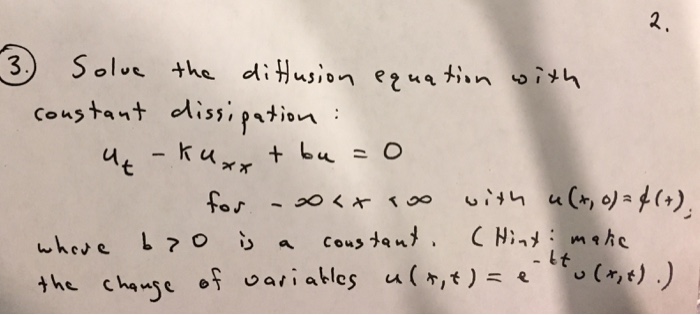 2.
3. Solve the diffusion equation with
constant dissipation :
u_t - k u_xx + bu = 0
for -∞ < x < ∞ with u(x,0) = ϕ(x),
where b > 0 is a constant. (Hint: make
the change of variables u(x,t) = e^{-bt} v(x,t).)